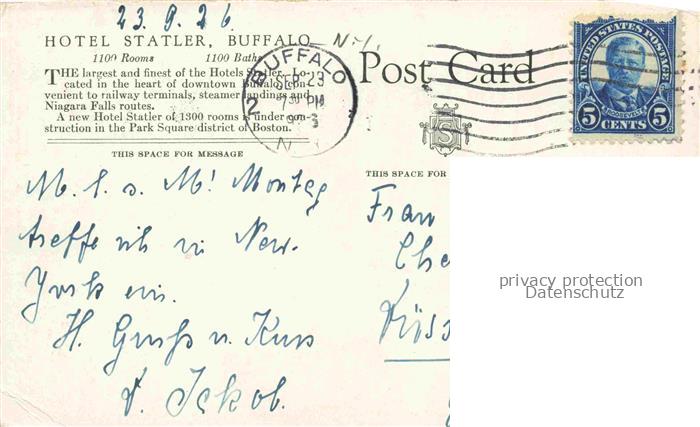 23.9.26.
HOTEL STATLER, BUFFALO N.Y.
1100 Rooms 1100 Baths
THE largest and finest of the Hotels Statler. Located
in the heart of downtown Buffalo, convenient
to railway terminals, steamer landings and
Niagara Falls routes.
A new Hotel Statler of 1300 rooms is under construction
in the Park Square district of Boston.
BUFFALO
2
SEP 23
7 30 PM
N.Y.
Post Card
S
UNITED STATES POSTAGE
ROOSEVELT
5 CENTS 5
THIS SPACE FOR MESSAGE
M. l. s. M! Montag
treffe ich in New-
York ein.
H. Gruß u. Kuss
THIS SPACE FOR
Frau
Che
Düss
privacy protection
Datenschutz